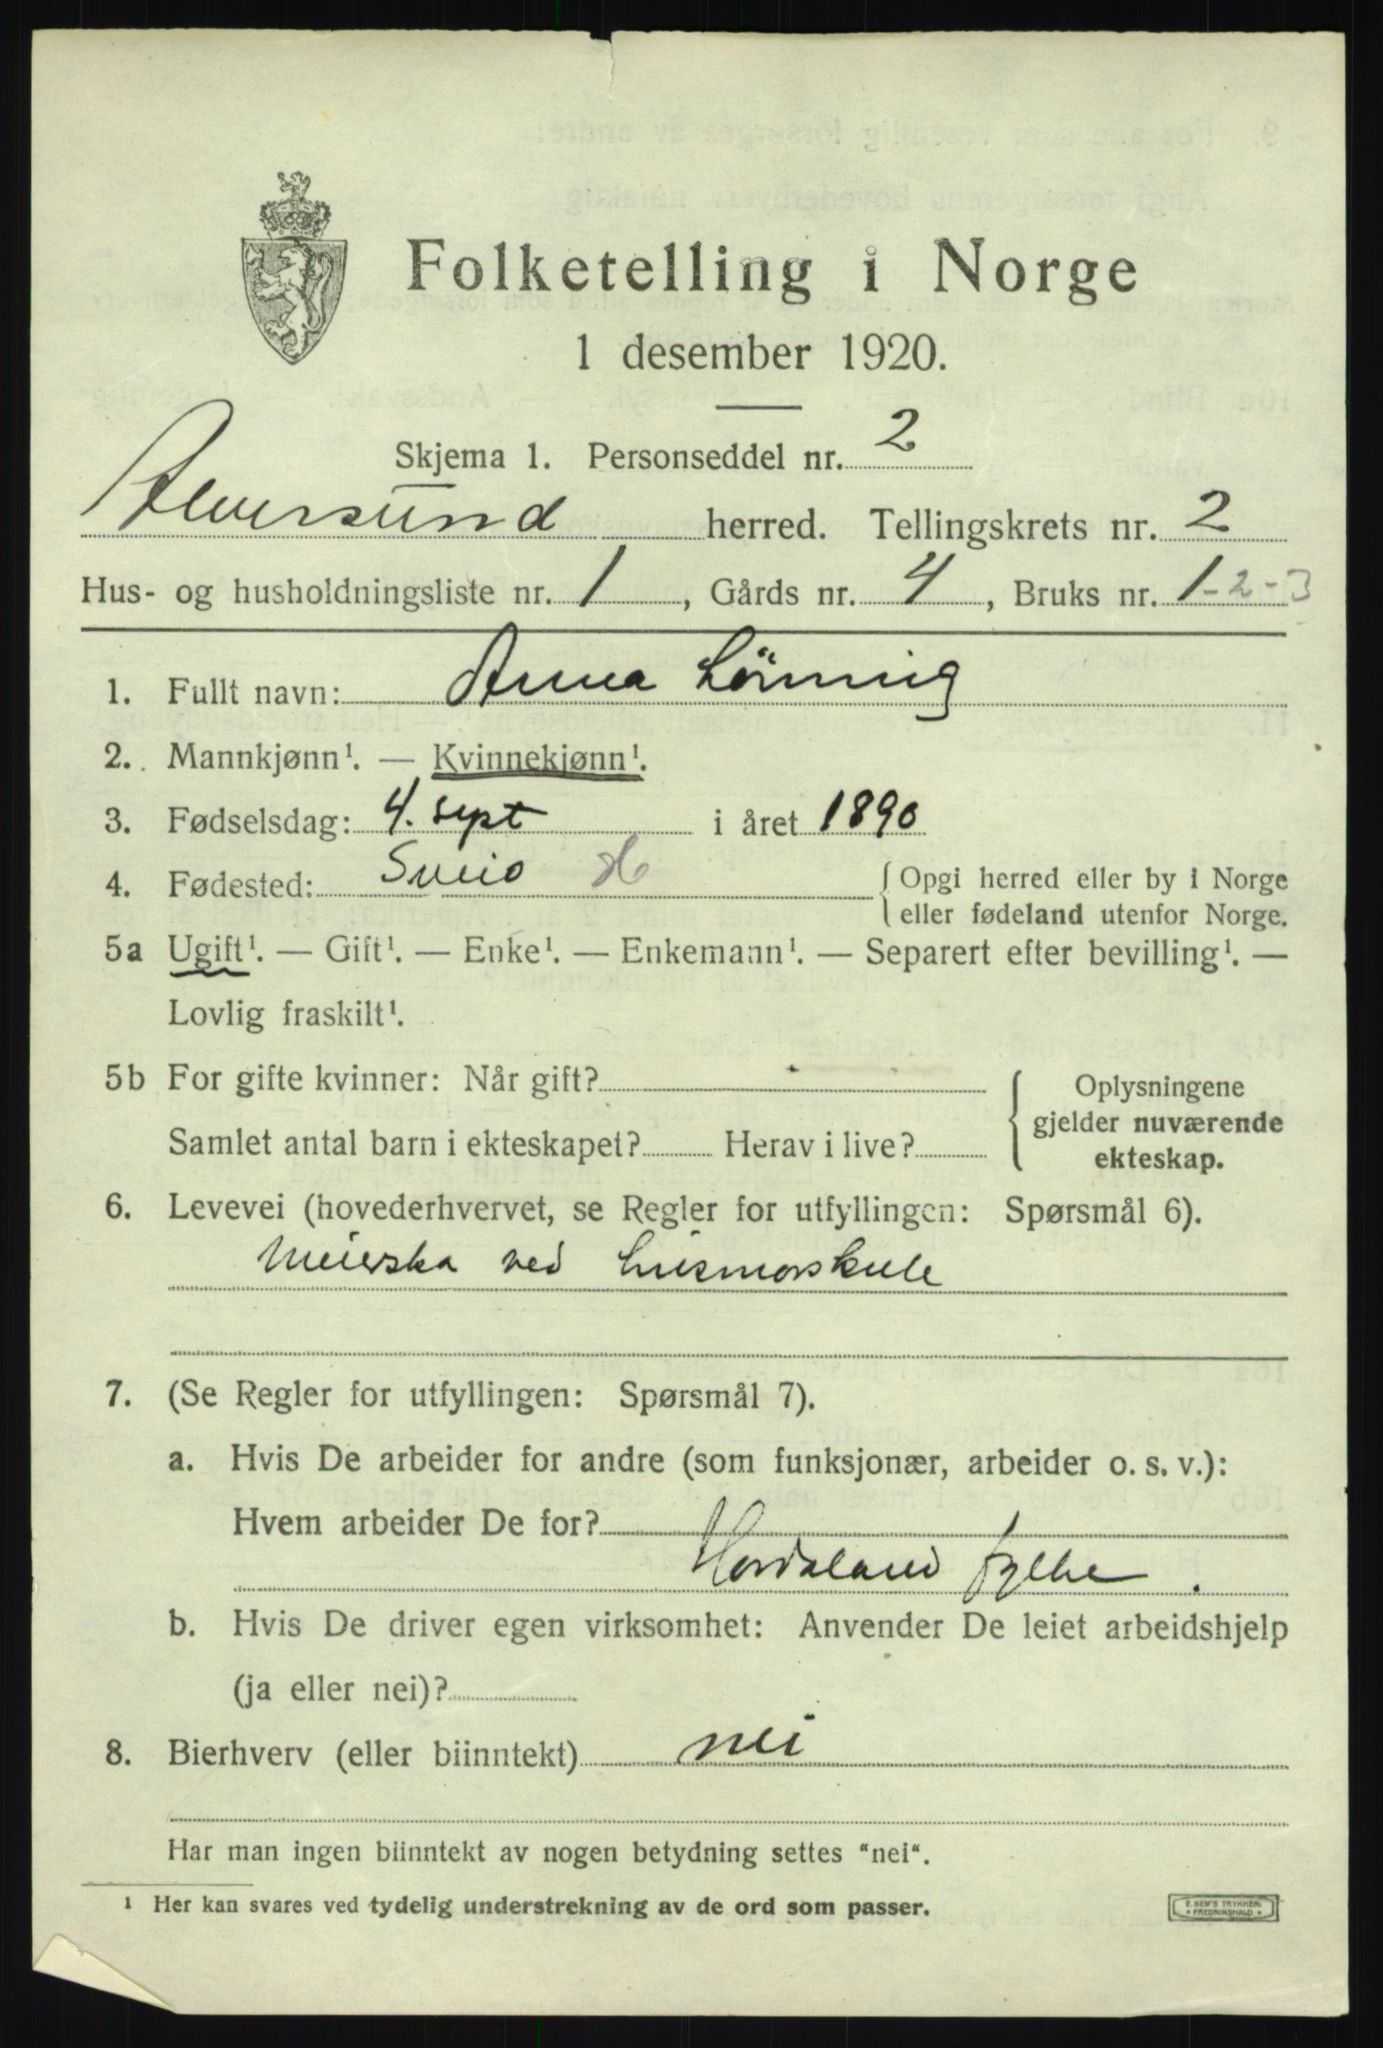 Folketelling i Norge
1 desember 1920.
Skjema 1. Personseddel nr. 2
Alversund herred. Tellingskrets nr. 2
Hus- og husholdningsliste nr. 1, Gårds nr. 4, Bruks nr. 1-2-3
1. Fullt navn: Anna Lönning
2. Mannkjønn¹. — Kvinnekjønn¹.
3. Fødselsdag: 4. sept i året 1890
4. Fødested: Sveio H { Opgi herred eller by i Norge
eller fødeland utenfor Norge.
5a Ugift¹. — Gift¹. — Enke¹. — Enkemann¹. — Separert efter bevilling¹. —
Lovlig fraskilt¹.
5b For gifte kvinner: Når gift? { Oplysningene
gjelder nuværende
Samlet antal barn i ekteskapet? Herav i live? ekteskap.
6. Levevei (hovederhvervet, se Regler for utfyllingen: Spørsmål 6).
Meierska ved husmorskule
7. (Se Regler for utfyllingen: Spørsmål 7).
a. Hvis De arbeider for andre (som funksjonær, arbeider o. s. v.):
Hvem arbeider De for?
Hordaland fylke.
b. Hvis De driver egen virksomhet: Anvender De leiet arbeidshjelp
(ja eller nei)?
8. Bierhverv (eller biinntekt) nei
Har man ingen biinntekt av nogen betydning settes "nei".
¹ Her kan svares ved tydelig understrekning av de ord som passer.
E. SEM'S TRYKKERI
* FREDRIKSHALD *